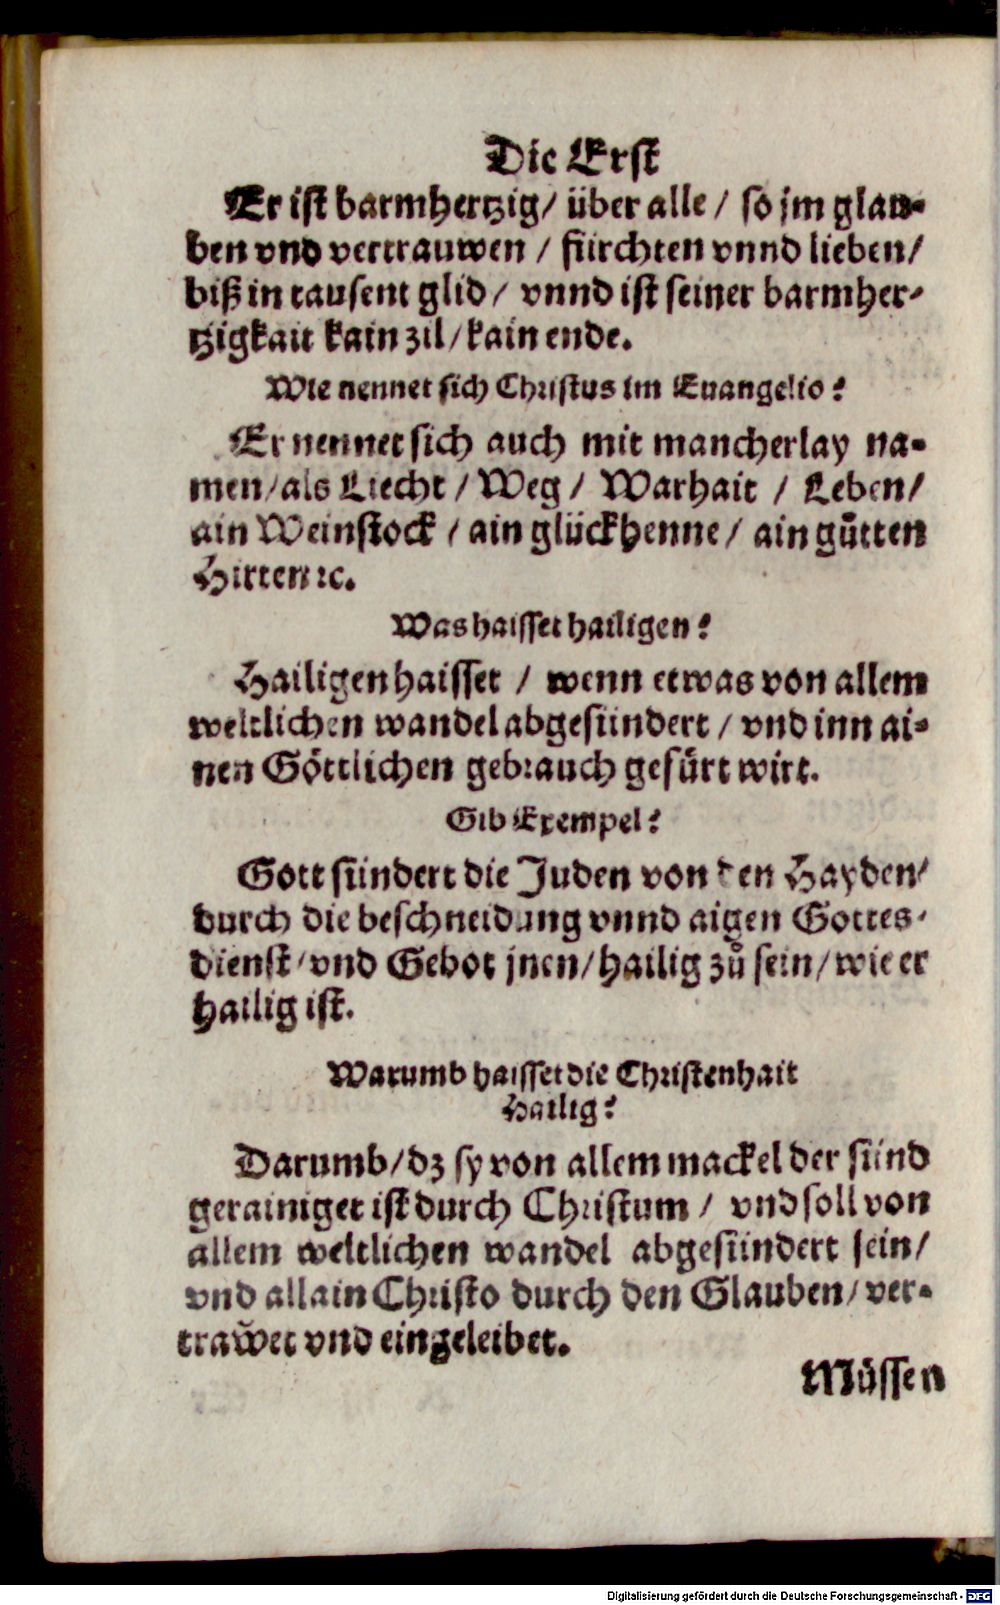 Die Erst
Er ist barmhertzig/ über alle / so jm glau-
ben vnd vertrauwen / fürchten vnnd lieben/
biß in tausent glid/ vnnd ist seiner barmher-
tzigkait kain zil/ kain ende.
Wie nennet sich Christus im Euangelio?
Er nennet sich auch mit mancherlay na-
men/ als Liecht / Weg / Warhait / Leben/
ain Weinstock / ain glückhenne / ain guͤtten
Hirten ꝛc.
Was haisset hailigen?
Hailigen haisset / wenn etwas von allem
weltlichen wandel abgesündert / vnd inn ai-
nen Göttlichen gebrauch gefuͤrt wirt.
Gib Exempel?
Gott sündert die Juden von den Hayden/
durch die beschneidung vnnd aigen Gottes-
dienst/ vnd Gebot jnen/ hailig zuͦ sein/ wie er
hailig ist.
Warumb haisset die Christenhait
Hailig?
Darumb/ dz sy von allem mackel der sünd
gerainiget ist durch Christum / vnd soll von
allem weltlichen wandel abgesündert sein/
vnd allain Christo durch den Glauben/ ver-
trawet vnd eingeleibet.
Muͤssen
Digitalisierung gefördert durch die Deutsche Forschungsgemeinschaft - DFG